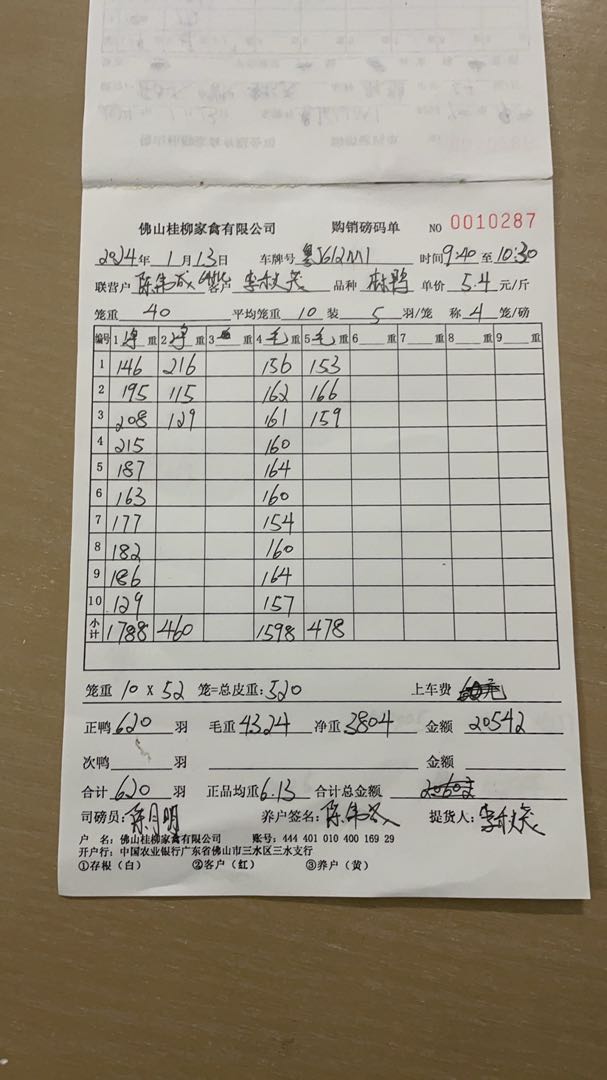 佛山桂柳家禽有限公司 购销磅码单 NO 0010287
2024年 1月13日 车牌号 粤J612M1 时间9:40至10:30
联营户 陈伟成 客户 李秋 品种 林鸭 单价 5.4 元/斤
笼重 40 平均笼重 10 装 5 羽/笼 称 4 笼/磅
编号 1 净重 2 净重 3 重 4 毛重 5 毛重 6 重 7 重 8 重 9 重
1 146 216 156 153
2 195 115 162 166
3 208 129 161 159
4 215 160
5 187 164
6 163 160
7 177 154
8 182 160
9 186 164
10 129 157
小计 1788 460 1598 478
笼重 10 X 52 笼=总皮重:520 上车费 60元
正鸭 620 羽 毛重 4324 净重 3804 金额 20542
次鸭 羽 金额
合计 620 羽 正品均重 6.13 合计总金额 20602
司磅员: 陈月明 养户签名: 陈伟成 提货人: 李秋
户 名: 佛山桂柳家禽有限公司 账号: 444 401 010 400 169 29
开户行: 中国农业银行广东省佛山市三水区三水支行
①存根(白) ②客户(红) ③养户(黄)